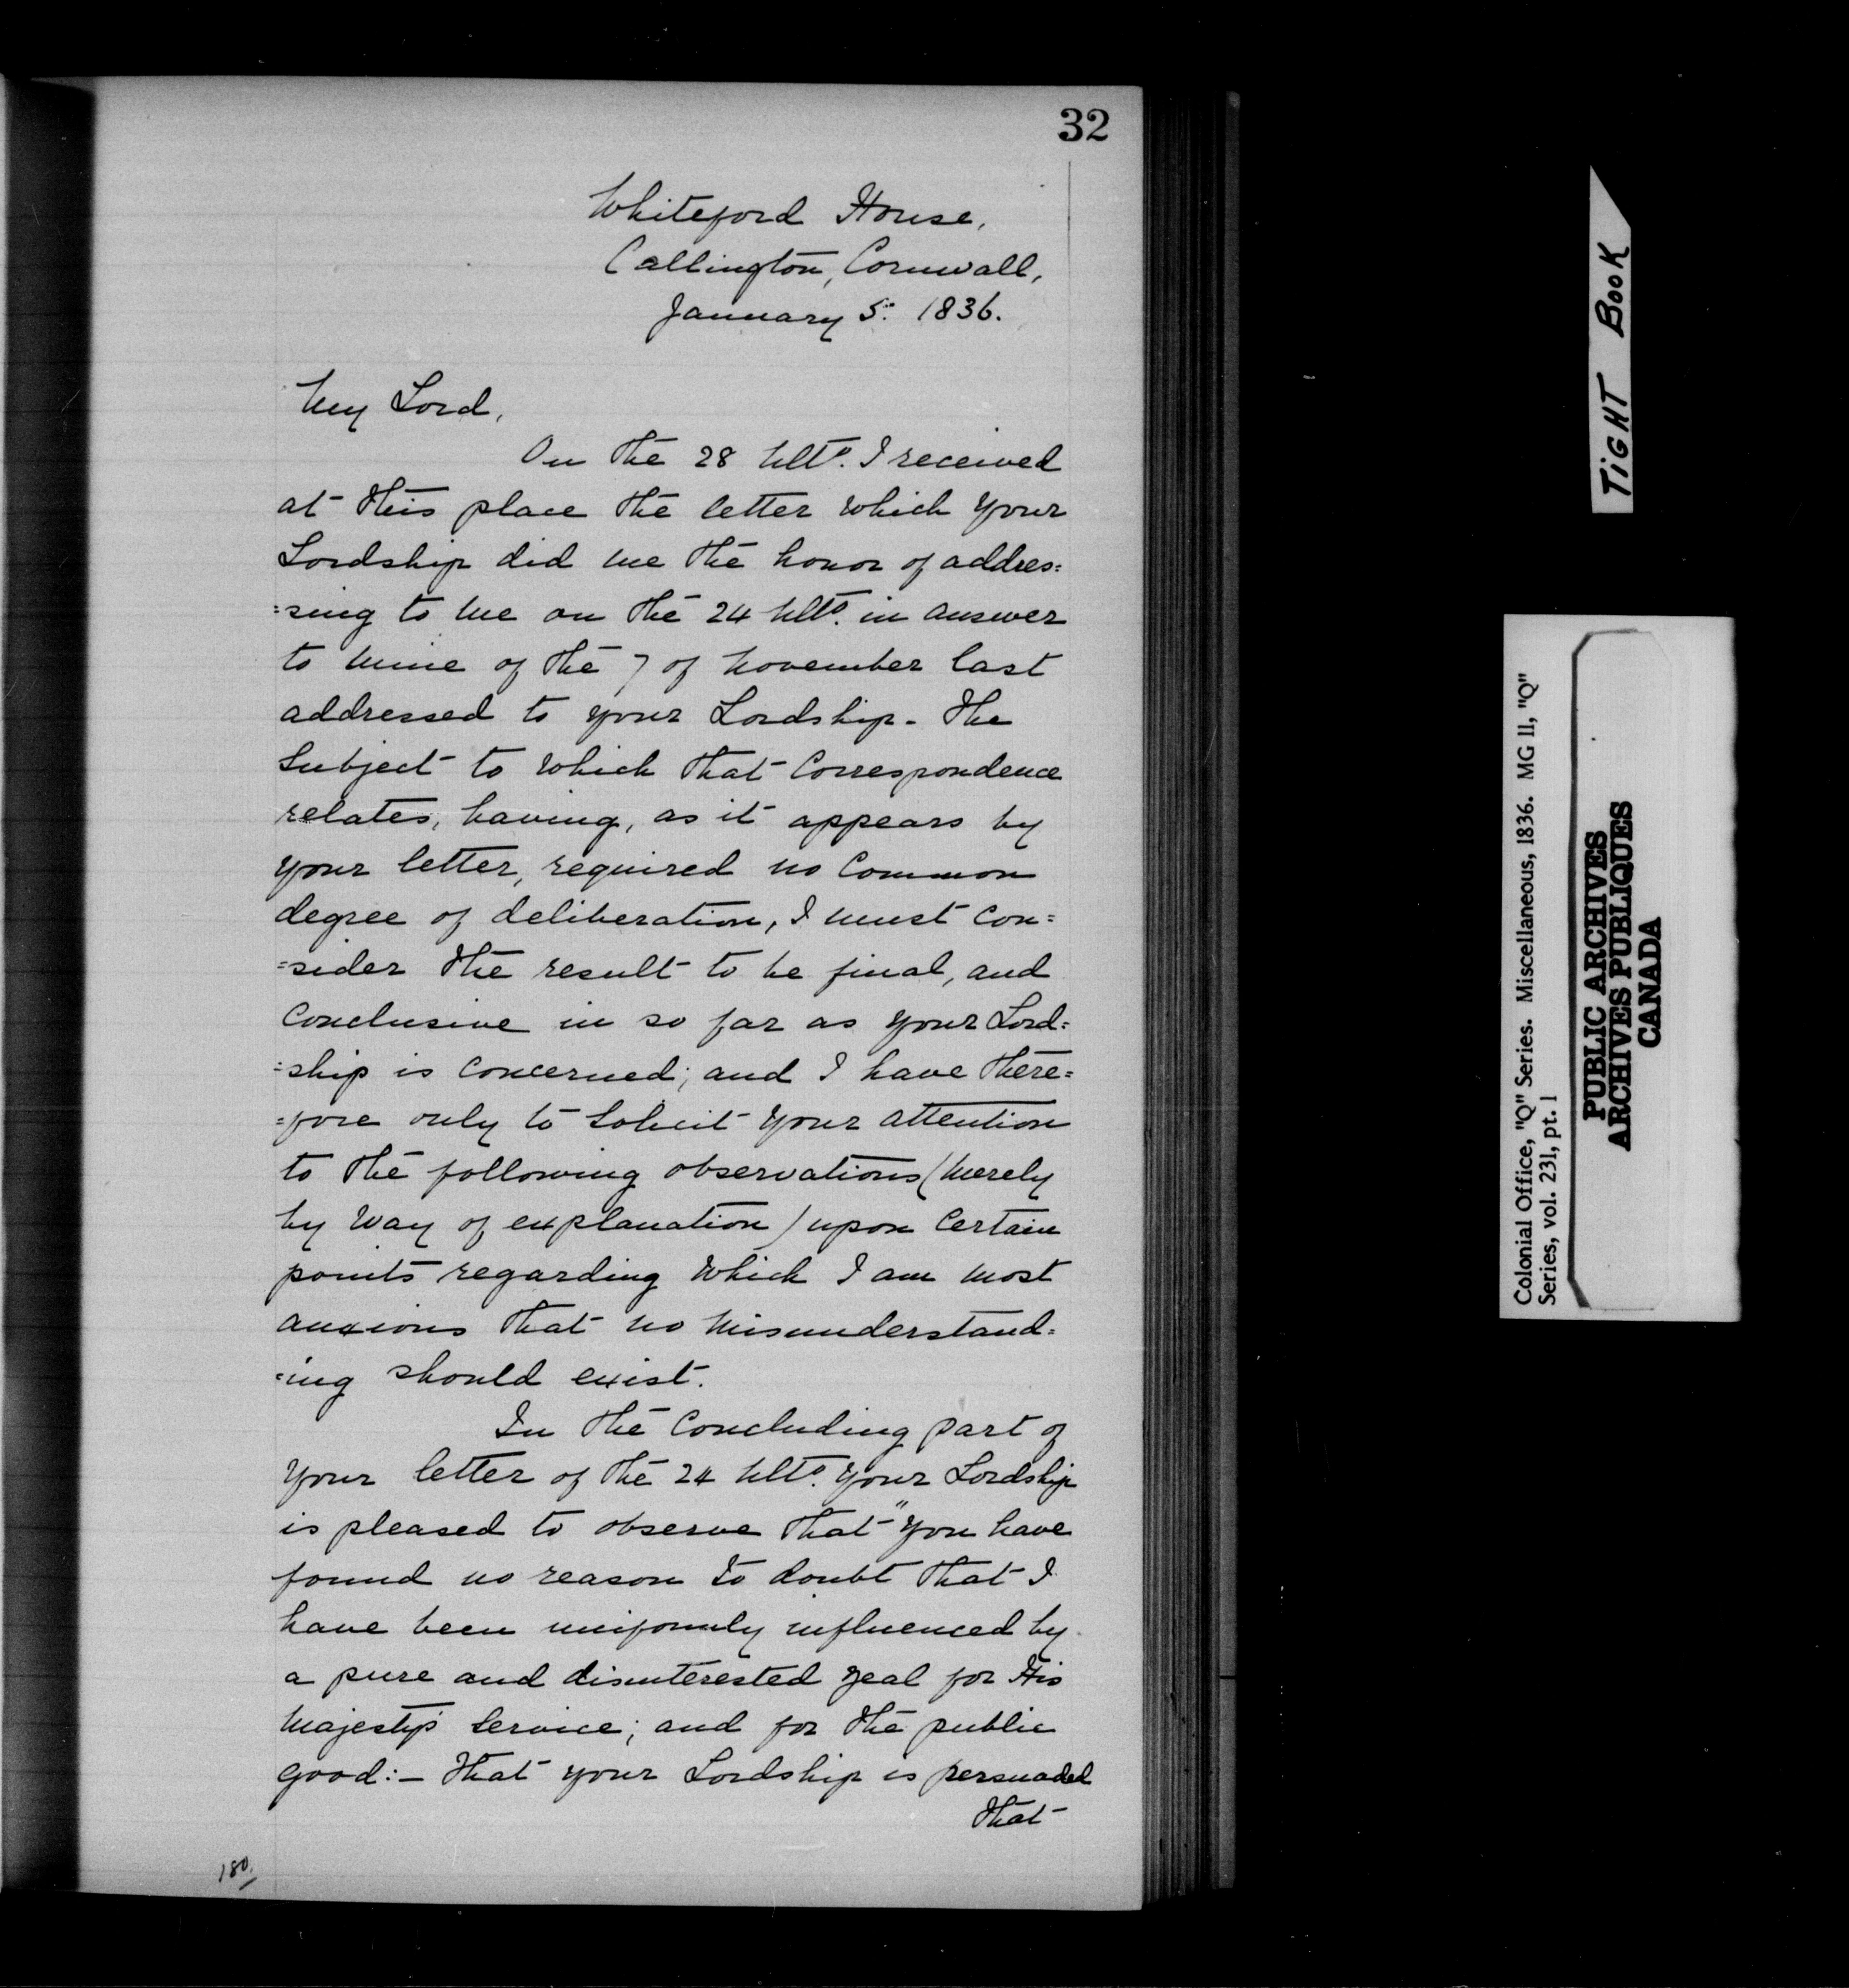 32
Whiteford House,
Callington, Cornwall,
January 5. 1836.
My Lord,
On the 28 Ulto. I received
at this place the letter which your
Lordship did me the honor of addres=
=sing to me on the 24 Ulto. in answer
to mine of the 7 of November last
addressed to your Lordship - The
Subject to which that Correspondence
relates, having, as it appears by
your letter, required no Common
degree of deliberation, I must Con=
=sider the result to be final, and
Conclusive in so far as your Lord=
=ship is Concerned; and I have there=
=fore only to Solicit your attention
to the following observations (merely
by way of explanation) upon Certain
points regarding which I am most
anxious that no misunderstand=
=ing should exist.
In the Concluding part of
your letter of the 24 Ulto. your Lordship
is pleased to observe that "you have
found no reason to doubt that I
have been uniformly influenced by
a pure and disinterested zeal for His
Majesty's Service; and for the public
good:- that your Lordship is persuaded
that
180.
TiGHT BOOK
Colonial Office, "Q" Series. Miscellaneous, 1836. MG 11, "Q"
Series, vol. 231, pt. 1
PUBLIC ARCHIVES
ARCHIVES PUBLIQUES
CANADA